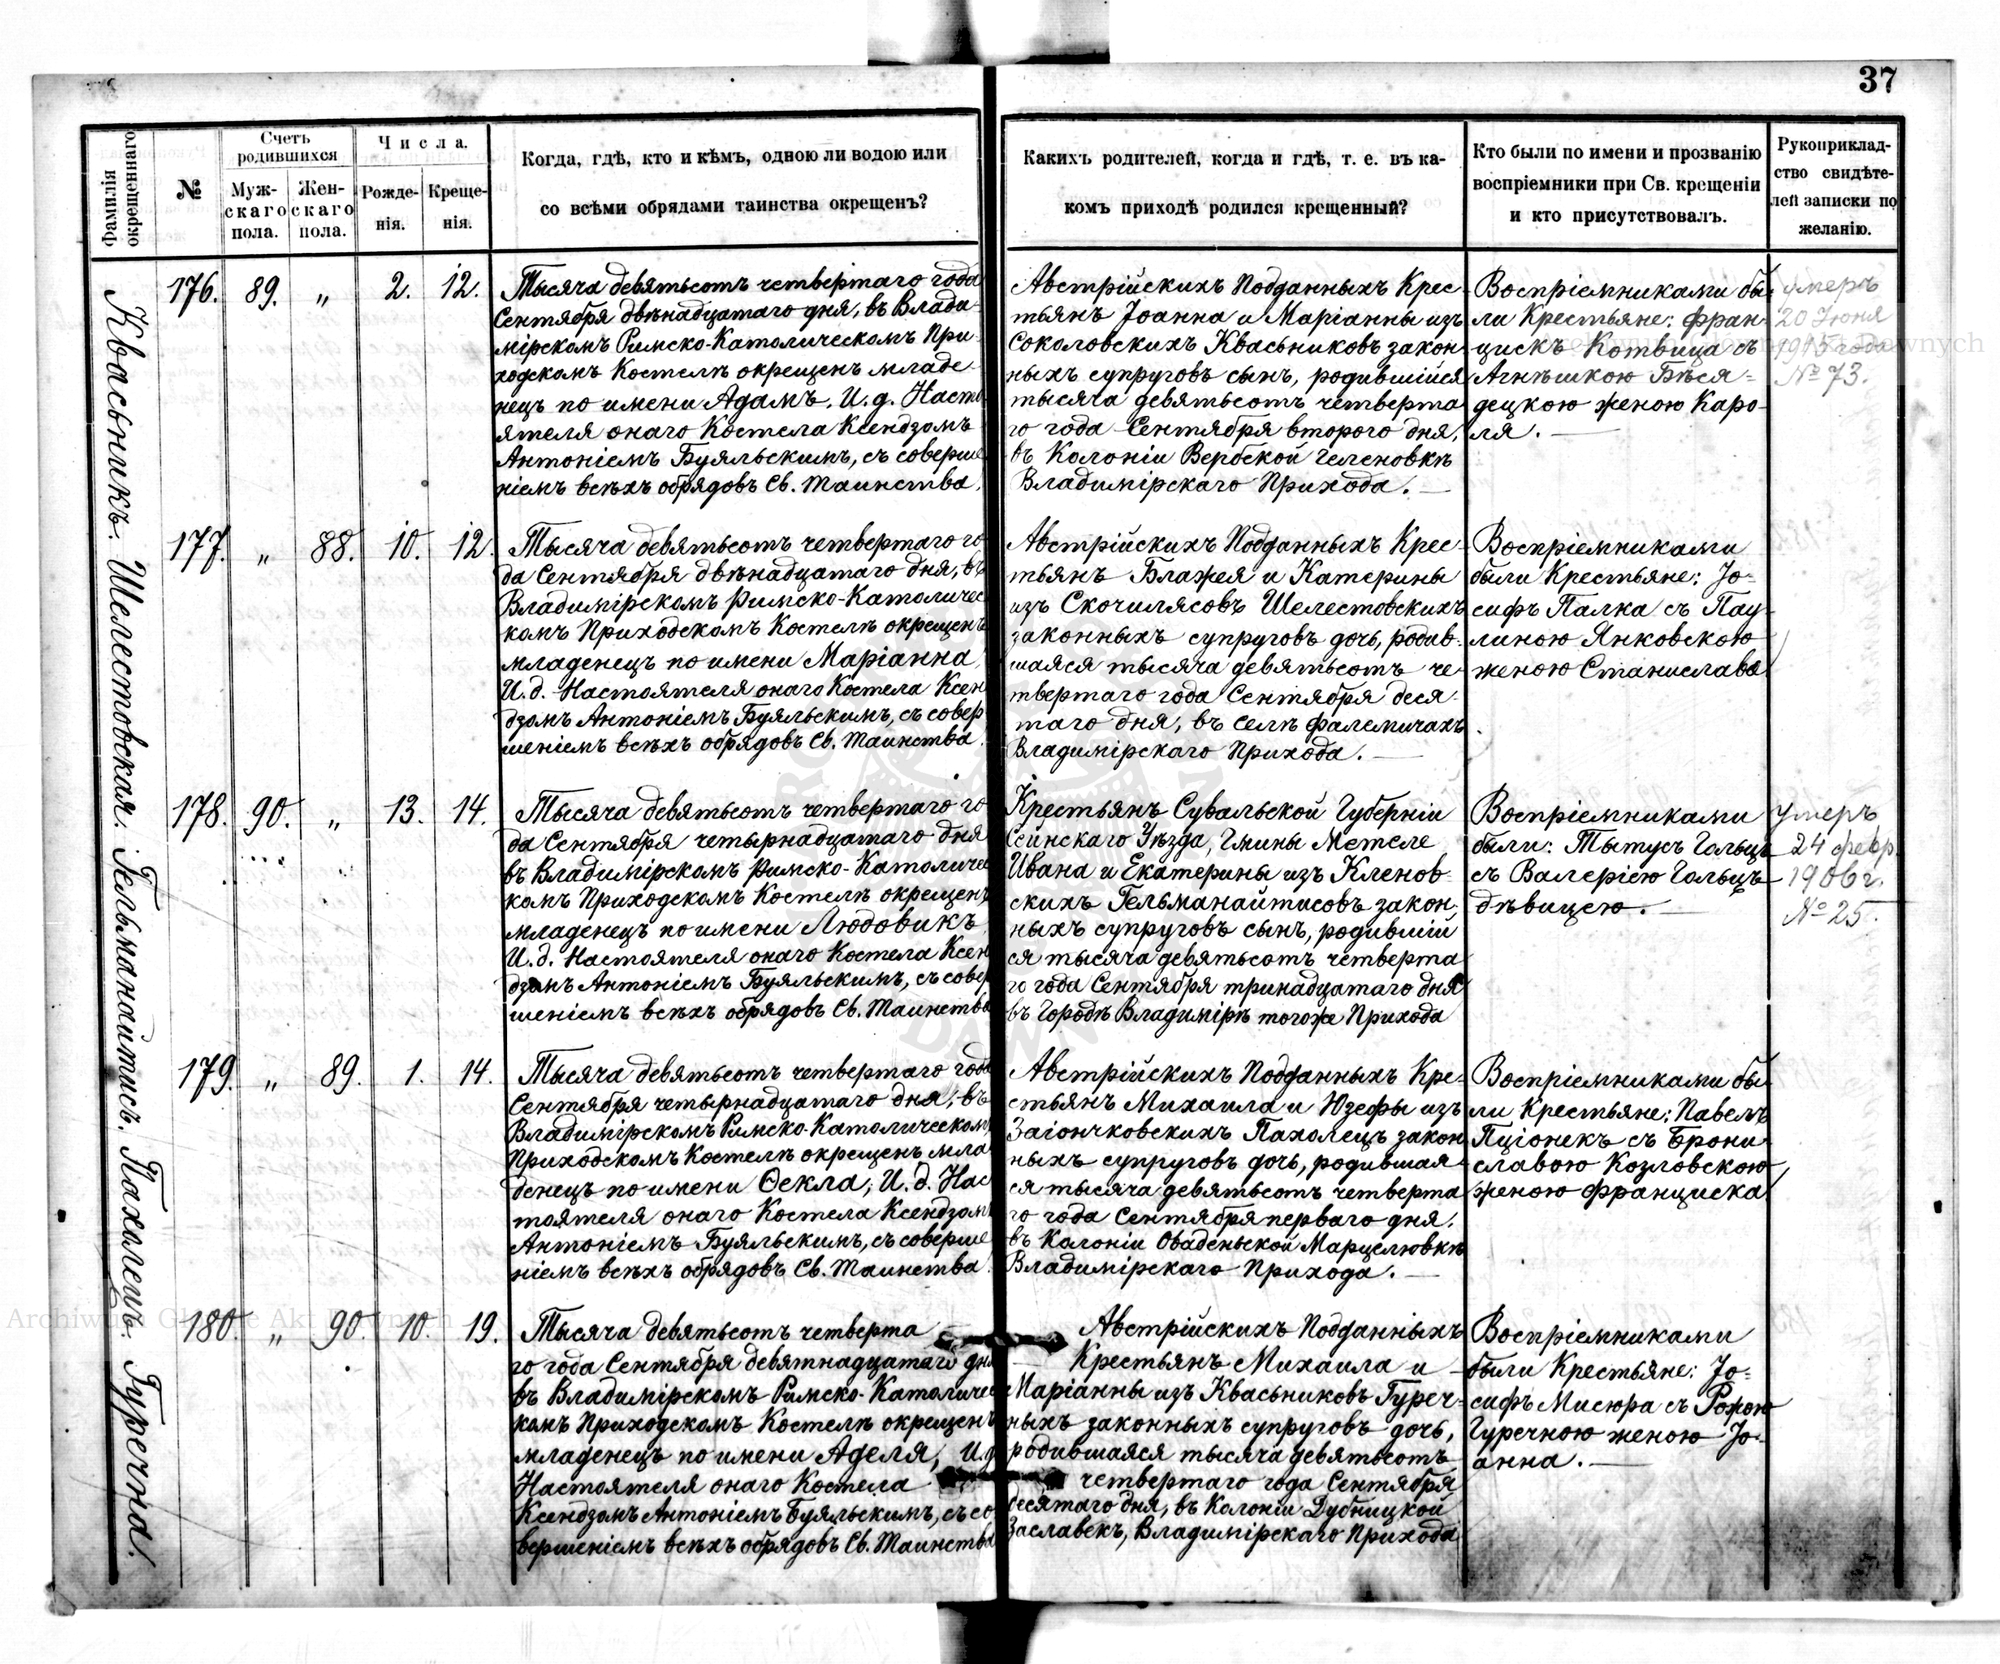 37
Фамилія окрещеннаго
№
Счетъ родившихся
Муж-скаго пола.
Жен-скаго пола.
Числа.
Рожде-нія.
Креще-нія.
Когда, гдѣ, кто и кѣмъ, одною ли водою или
со всѣми обрядами таинства окрещенъ?
Какихъ родителей, когда и гдѣ, т. е. въ ка-
комъ приходѣ родился крещенный?
Кто были по имени и прозванію
воспріемники при Св. крещеніи
и кто присутствовалъ.
Рукоприклад-
ство свидѣте-
лей записки по
желанію.
Квасьникъ.
176. 89. „ 2. 12.
Тысяча девятьсотъ четвертаго года
Сентября двѣнадцатаго дня, въ Влади-
мірскомъ Римско-Католическомъ При-
ходскомъ Костелѣ окрещенъ младе-
нецъ по имени Адамъ. И. д. Насто
ятеля онаго Костела Ксендзомъ
Антоніемъ Буяльскимъ, съ соверше
ніемъ всѣхъ обрядовъ Св. Таинства.
Австрійскихъ Подданныхъ Крес-
тьянъ Іоанна и Маріанны изъ
Соколовскихъ Квасьниковъ закон-
ныхъ супруговъ сынъ, родившійся
тысяча девятьсотъ четверта
го года Сентября второго дня,
въ Колоніи Вербской Челеновкѣ
Владимірскаго Прихода.
Воспріемниками бы
ли Крестьяне: Фран-
цискъ Котвица съ
Агнѣшкою Бѣся-
децкою женою Каро-
ля.
Умеръ
20 Іюня
1915 года
№ 73.
Шелестовская.
177. „ 88. 10. 12.
Тысяча девятьсотъ четвертаго го
да Сентября двѣнадцатаго дня, въ
Владимірскомъ Римско-Католичес
комъ Приходскомъ Костелѣ окрещенъ
младенецъ по имени Маріанна
И. д. Настоятеля онаго Костела Ксен
дзомъ Антоніемъ Буяльскимъ, съ совер
шеніемъ всѣхъ обрядовъ Св. Таинства.
Австрійскихъ Подданныхъ Крес-
тьянъ Блажея и Катерины
изъ Скочилясовъ Шелестовскихъ
законныхъ супруговъ дочь, родив-
шаяся тысяча девятьсотъ че-
твертаго года Сентября деся-
таго дня, въ селѣ Фалемичахъ
Владимірскаго Прихода.
Воспріемниками
были Крестьяне: Іо-
сифъ Палка съ Пау-
линою Янковскою
женою Станислава
Гельманайтисъ.
178. 90. „ 13. 14.
Тысяча девятьсотъ четвертаго го
да Сентября четырнадцатаго дня
въ Владимірскомъ Римско-Католичес
комъ Приходскомъ Костелѣ окрещенъ
младенецъ по имени Людовикъ
И. д. Настоятеля онаго Костела Ксен
дзомъ Антоніемъ Буяльскимъ, съ совер
шеніемъ всѣхъ обрядовъ Св. Таинства
Крестьянъ Сувальской Губерніи
Сейнскаго Уѣзда, Гмины Метеле
Ивана и Екатерины изъ Кленов-
скихъ Гельманайтисовъ закон-
ныхъ супруговъ сынъ, родившій
ся тысяча девятьсотъ четверта
го года Сентября тринадцатаго дня
въ Городѣ Владимірѣ тогоже Прихода
Воспріемниками
были: Тытусъ Гольцъ
съ Валеріею Гольцъ
дѣвицею.
Умеръ
24 февр.
1906 г.
№ 25.
Пахолецъ.
179. „ 89. 1. 14.
Тысяча девятьсотъ четвертаго года
Сентября четырнадцатаго дня, въ
Владимірскомъ Римско-Католическомъ
Приходскомъ Костелѣ окрещенъ мла
денецъ по имени Ѳекла, И. д. Нас
тоятеля онаго Костела Ксендзомъ
Антоніемъ Буяльскимъ, съ соверше
ніемъ всѣхъ обрядовъ Св. Таинства
Австрійскихъ Подданныхъ Кре-
стьянъ Михаила и Юзефы изъ
Заіончковскихъ Пахолецъ закон
ныхъ супруговъ дочь, родившая
ся тысяча девятьсотъ четверта
го года Сентября перваго дня.
въ Колоніи Оваденьской Марцелювкѣ
Владимірскаго Прихода.
Воспріемниками бы
ли Крестьяне: Павелъ
Пціонекъ съ Брони
славою Козловскою,
женою Франциска
Гуречна.
180. „ 90. 10. 19.
Тысяча девятьсотъ четверта
го года Сентября девятнадцатаго дня
въ Владимірскомъ Римско-Католичес
комъ Приходскомъ Костелѣ окрещенъ
младенецъ по имени Аделя, И. д
Настоятеля онаго Костела
Ксендзомъ Антоніемъ Буяльскимъ, съ со
вершеніемъ всѣхъ обрядовъ Св. Таинства
Австрійскихъ Подданныхъ
Крестьянъ Михаила и
Маріанны изъ Квасьниковъ Гуреч-
ныхъ законныхъ супруговъ дочь,
родившаяся тысяча девятьсотъ
четвертаго года Сентября
десятаго дня, въ Колоніи Дубницкой
Заславекъ, Владимірскаго Прихода
Воспріемниками
были Крестьяне: Іо-
сифъ Мисюра съ Розою
Гуречною женою Іо-
анна.